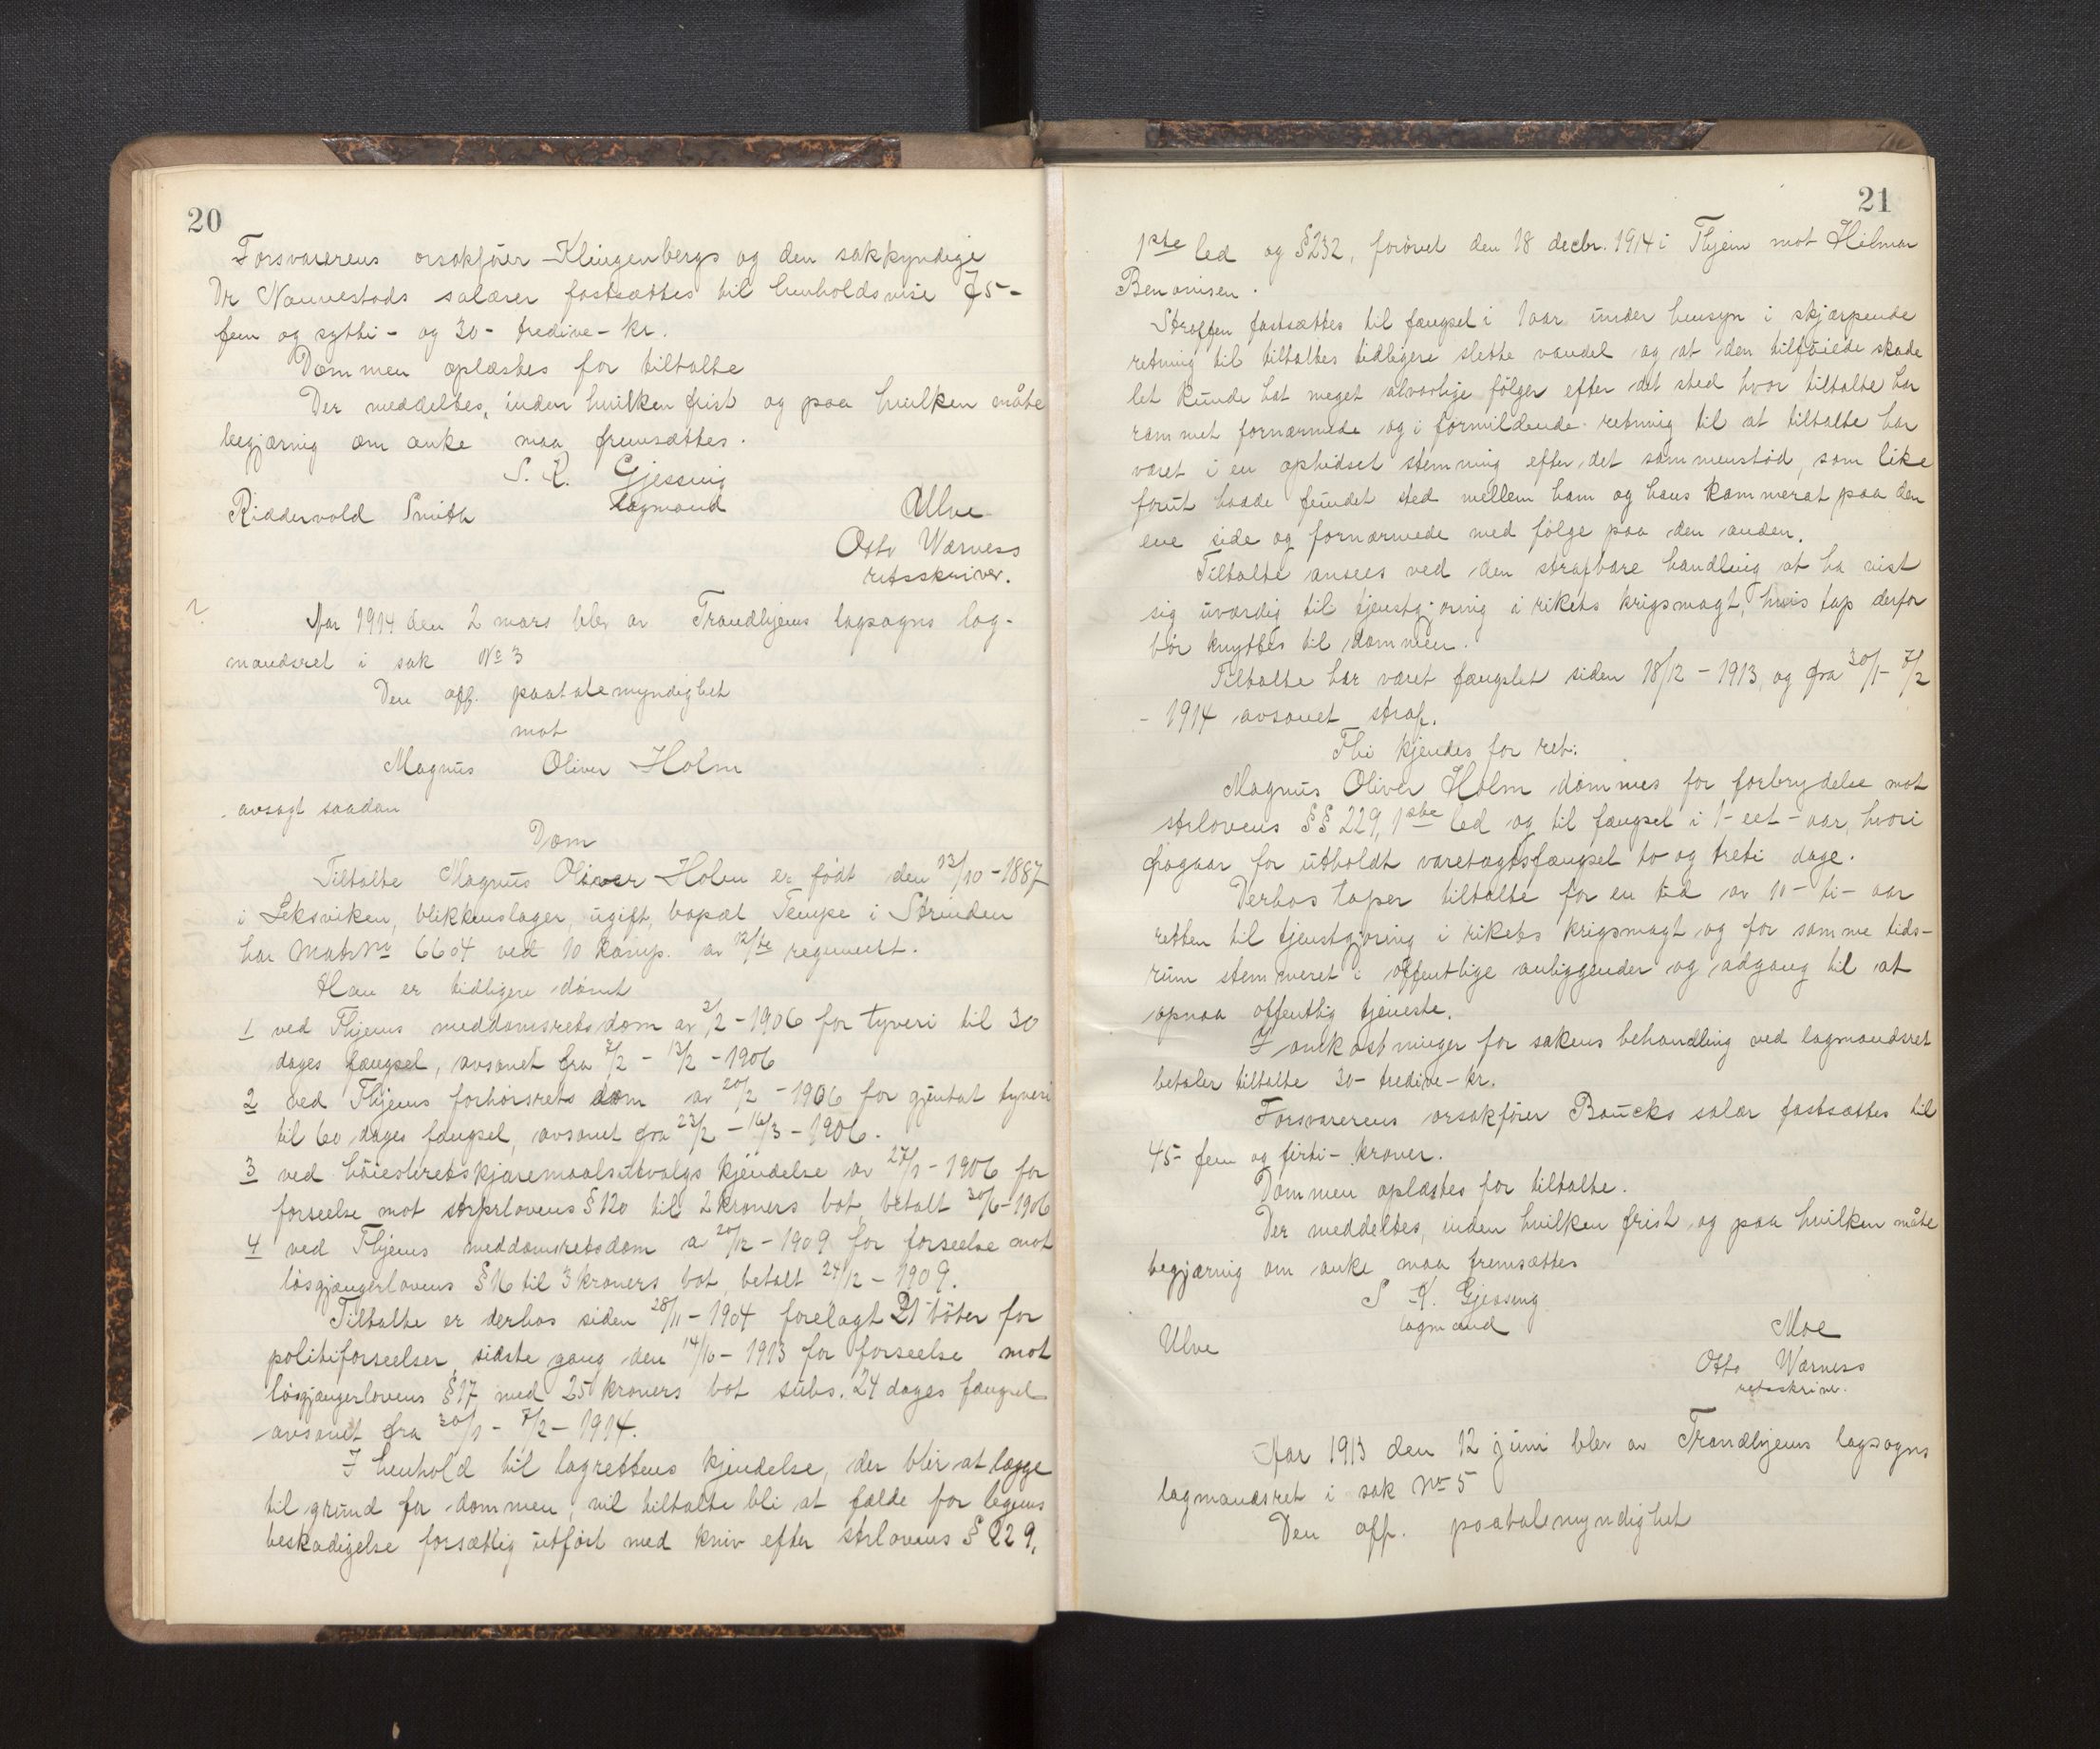 20
Forsvarerens orsakfører Klingenbergs og den sakkyndige
Dr Nauvestads salærer fastsættes til henholdsvise 75-
fem og sytti- og 30- tredive- kr.
Dommen oplæstes for tiltalte
Der meddeltes, inden hvilken frist og paa hvilken måte
begjæring om anke maa fremsættes.
S. K. Gjessing
lagmand
Riddervold Smith
Ulve
Otto Wærness
retsskriver.
Aar 1914 den 2 mars blev av Trondhjems lagsogns lag-
mandsret i sak No 3
Den off. paatalemyndighet
mot
Magnus Oliver Holm
avsagt saadan
Dom
Tiltalte Magnus Oliver Holm er født den 13/10-1887
i Leksviken, blikkenslager, ugift, bopæl Tempe i Strinden
har Matr No 6604 ved 10 komp. av 12/te regiment.
Han er tidligere dømt
1 ved Thjems meddomsretsdom av 2/2-1906 for tyveri til 30
dages fængsel, avsonet fra 7/2 - 13/2 - 1906
2 ved Thjems forhørsrets dom av 20/2 - 1906 for gjentat tyveri
til 60 dages fængsel, avsonet fra 23/2 - 16/3 - 1906.
3 ved høiesteretskjæremaalsutvalgs kjendelse av 27/1 - 1906 for
forseelse mot strprlovens § 120 til 2 kroners bot, betalt 30/6-1906
4 ved Thjems meddomsretsdom a 20/12 - 1909 for forseelse mot
løsgjængerlovens § 16 til 3 kroners bot, betalt 24/12 - 1909.
Tiltalte er derhos siden 28/11 - 1904 forelagt 21 bøter for
politiforseelser, sidste gang den 14/10 - 1913 for forseelse mot
løsgjængerlovens § 17 med 25 kroners bot subs. 24 dages fængsel
avsonet fra 30/1 - 7/2 - 1914.
I henhold til lagrettens kjendelse, der blir at lægge
til grund for dommen, vil tiltalte bli at fælde for legems
beskadigelse forsættlig utført med kniv efter strlovens § 229,
21
1ste led og § 232, forøvet den 18 decbr. 1914 i Thjem mot Hilmar
Benonisen.
Straffen fastsættes til fængsel i 1 aar under hensyn i skjærpende
retning til tiltaltes tidligere slette vandel og at den tilføiede skade
let kunde hat meget alvorlige følger efter det sted hvor tiltalte har
rammet fornærmede og i formildende retning til at tiltalte har
været i en ophidset stemning efter det sammenstød, som like
forut hadde fundet sted mellem ham og hans kammerat paa den
ene side og fornærmede med følge paa den anden.
Tiltalte ansees ved den strafbare handling at ha vist
sig uværdig til tjenstgjøring i rikets krigsmagt, hvis tap derfor
bør knyttes til dommen.
Tiltalte har været fængslet siden 18/12 - 1913, og fra 30/1- 7/2
- 1914 avsonet straf.
Thi kjendes for ret:
Magnus Oliver Holm dømmes for forbrydelse mot
strlovens §§ 229, 1ste led og til fængsel i 1- eet - aar, hvori
fragaar for utholdt varetægtsfængsel to og treti dage.
Derhos taper tiltalte for en tid av 10- ti- aar
retten til tjenstgjøring i rikets krigsmagt og for samme tids-
rum stemmeret i offentlige anliggender og adgang til at
opnaa offentlig tjeneste.
I omkostninger for sakens behandling ved lagmandsret
betaler tiltalte 30- tredive- kr.
Forsvarerens orsakfører Baucks salær fastsættes til
45- fem og firti- kroner.
Dommen oplæstes for tiltalte.
Der meddeltes, inden hvilken frist og paa hvilken måte
begjæring om anke maa fremsættes
S K. Gjessing
lagmand
Ulve
Moe
Otto Wærness
retsskriver.
Aar 1913 den 12 juni blev av Trondhjems lagsogns
lagmandsret i sak No 5
Den off. paatalemyndighet